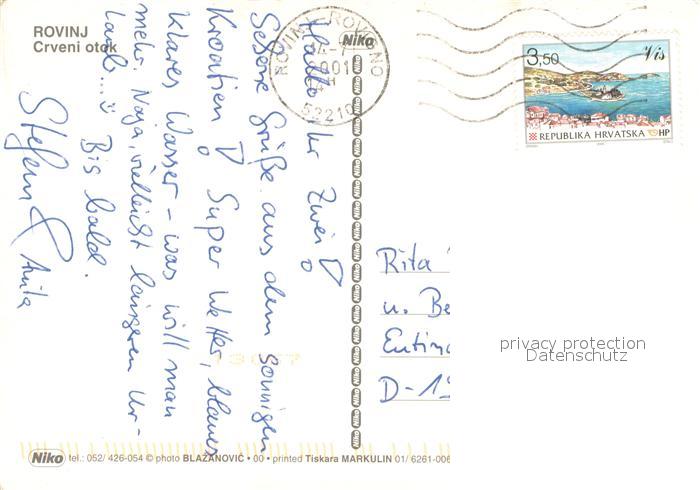 ROVINJ
Crveni otok
Hallo Ihr Zwei!
Schöne Grüße aus dem sonnigen
Kroatien! Super Wetter, blaues
klares Wasser - was will man
mehr. Naja, vielleicht längeren Ur-
laub...
Bis bald.
Stefan & Anita
ROVINJ ROVIGNO
2001
52210
Niko
3,50
Vis
REPUBLIKA HRVATSKA HP
Rita
u. Be
Eutine
D-19
privacy protection
Datenschutz
NIKO NIKO NIKO NIKO NIKO NIKO NIKO NIKO
Niko tel.: 052/ 426-054 © photo BLAŽANOVIĆ • 00 • printed Tiskara MARKULIN 01/ 6261-006